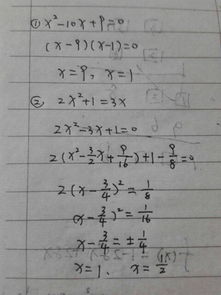 ① x²-10x+9=0
(x-9)(x-1)=0
x=9, x=1
② 2x²+1=3x
2x²-3x+1=0
2(x²-3/2x+9/16)+1-9/8=0
2(x-3/4)²=1/8
(x-3/4)²=1/16
x-3/4=±1/4
x=1, x=1/2